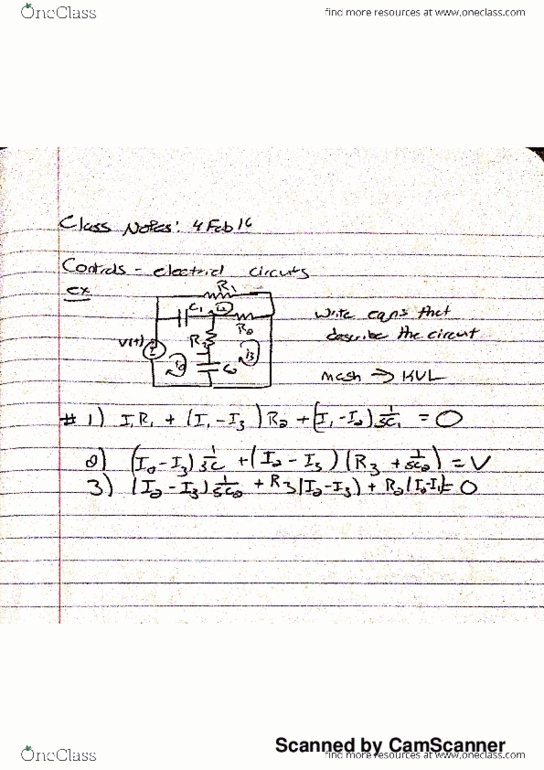 OneClass
find more resources at www.oneclass.com
Class Notes: 4 Feb 16
Controls - electrical circuits
ex
R1
C1
R2
V(t)
R3
I3
write eqns that
describe the circuit
mesh → KVL
# 1) I1R1 + (I1-I3)R2 + (I1-I2) 1/SC1 = 0
2) (I2-I3) 1/SC + (I2-I3)(R3 + 1/SC2) = V
3) (I2-I3) 1/SC2 + R3(I2-I3) + R2(I3-I1) = 0
Scanned by CamScanner
OneClass
find more resources at www.oneclass.com